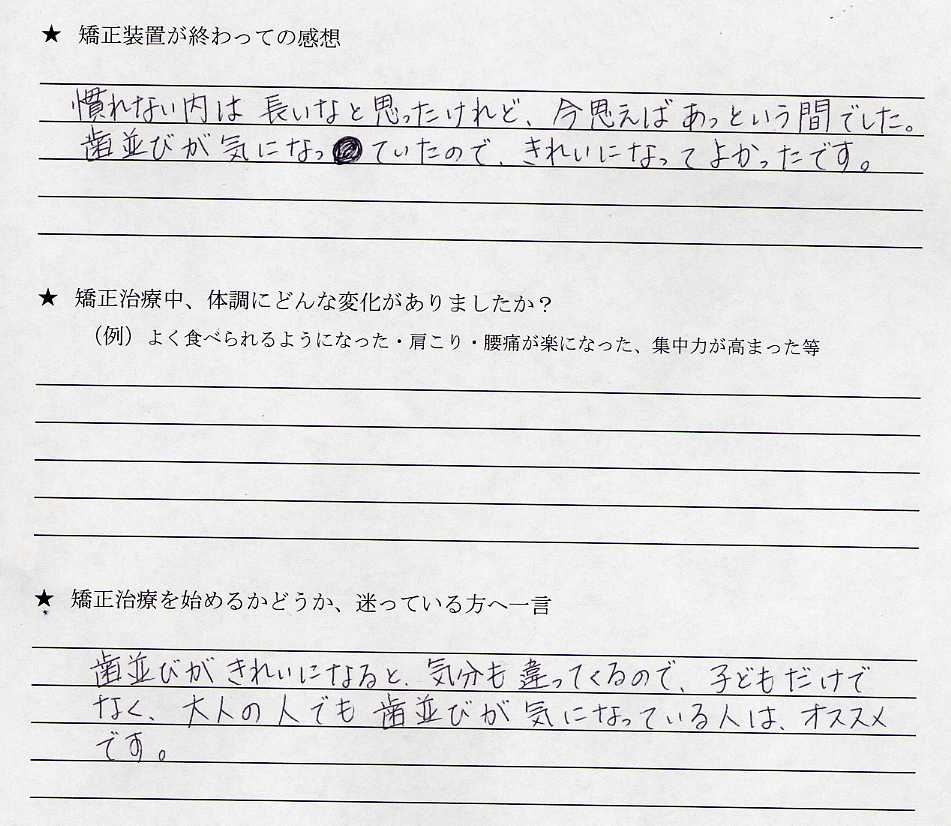 ★ 矯正装置が終わっての感想
慣れない内は 長いなと思ったけれど、今思えば あっという間でした。
歯並びが気になっていたので、きれいになってよかったです。
★ 矯正治療中、体調にどんな変化がありましたか？
（例）よく食べられるようになった・肩こり・腰痛が楽になった、集中力が高まった等
★ 矯正治療を始めるかどうか、迷っている方へ一言
歯並びが きれいになると、気分も違ってくるので、子どもだけで
なく、大人の人でも 歯並びが 気になっている人は、オススメ
です。